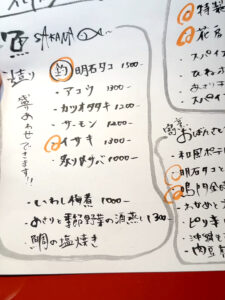 魚 SAKANA
造り
盛りあわせできます!!
釣 明石タコ 1500-
・アコウ 1300-
・カツオタタキ 1200-
・サーモン 1200-
・イサキ 1300-
・炙りサバ 1000-
・いわし梅煮 1000-
・あさりと季節野菜の酒蒸し 1300-
・鯛の塩焼き
特製
花否
スパイ
スパイ
おばんざ
・和風ポテ
・明石タコと
・鳴門金
・ピリ辛
・沖縄も